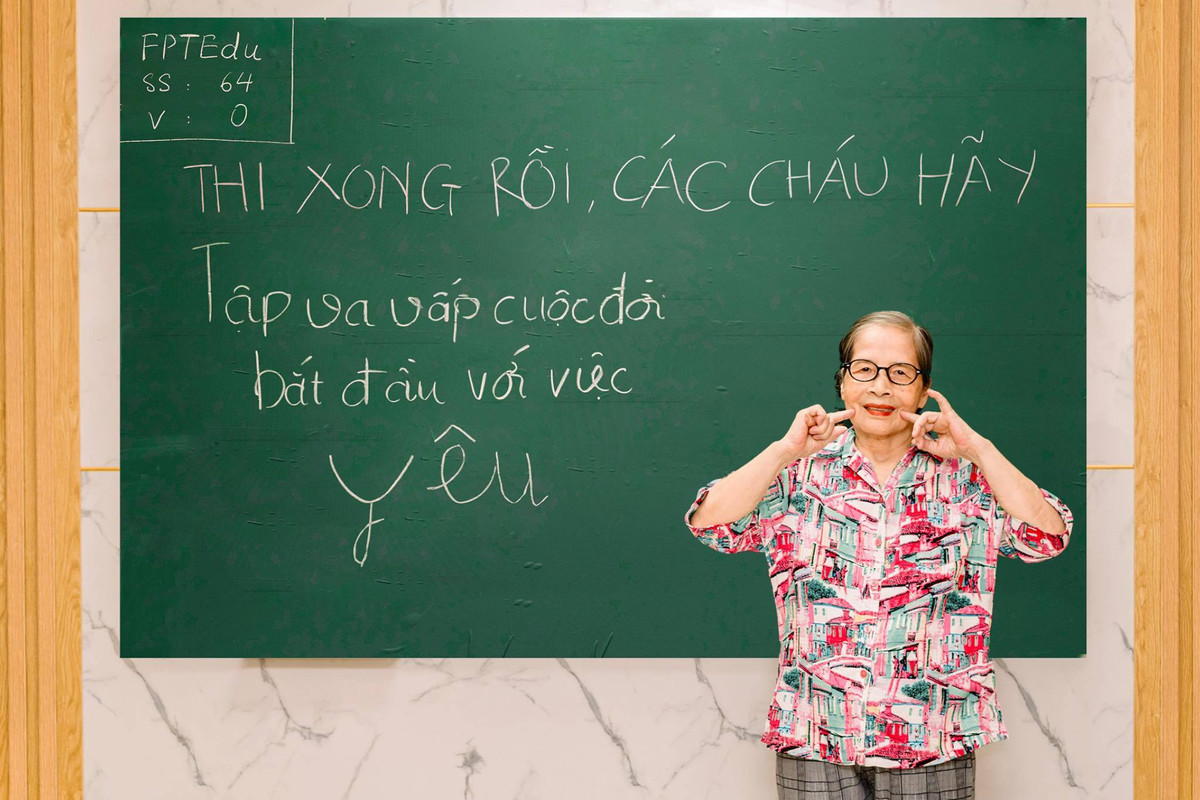 FPTEdu
SS : 64
V : 0
THI XONG RỒI, CÁC CHÁU HÃY
Tập va vấp cuộc đời
bắt đầu với việc
yêu